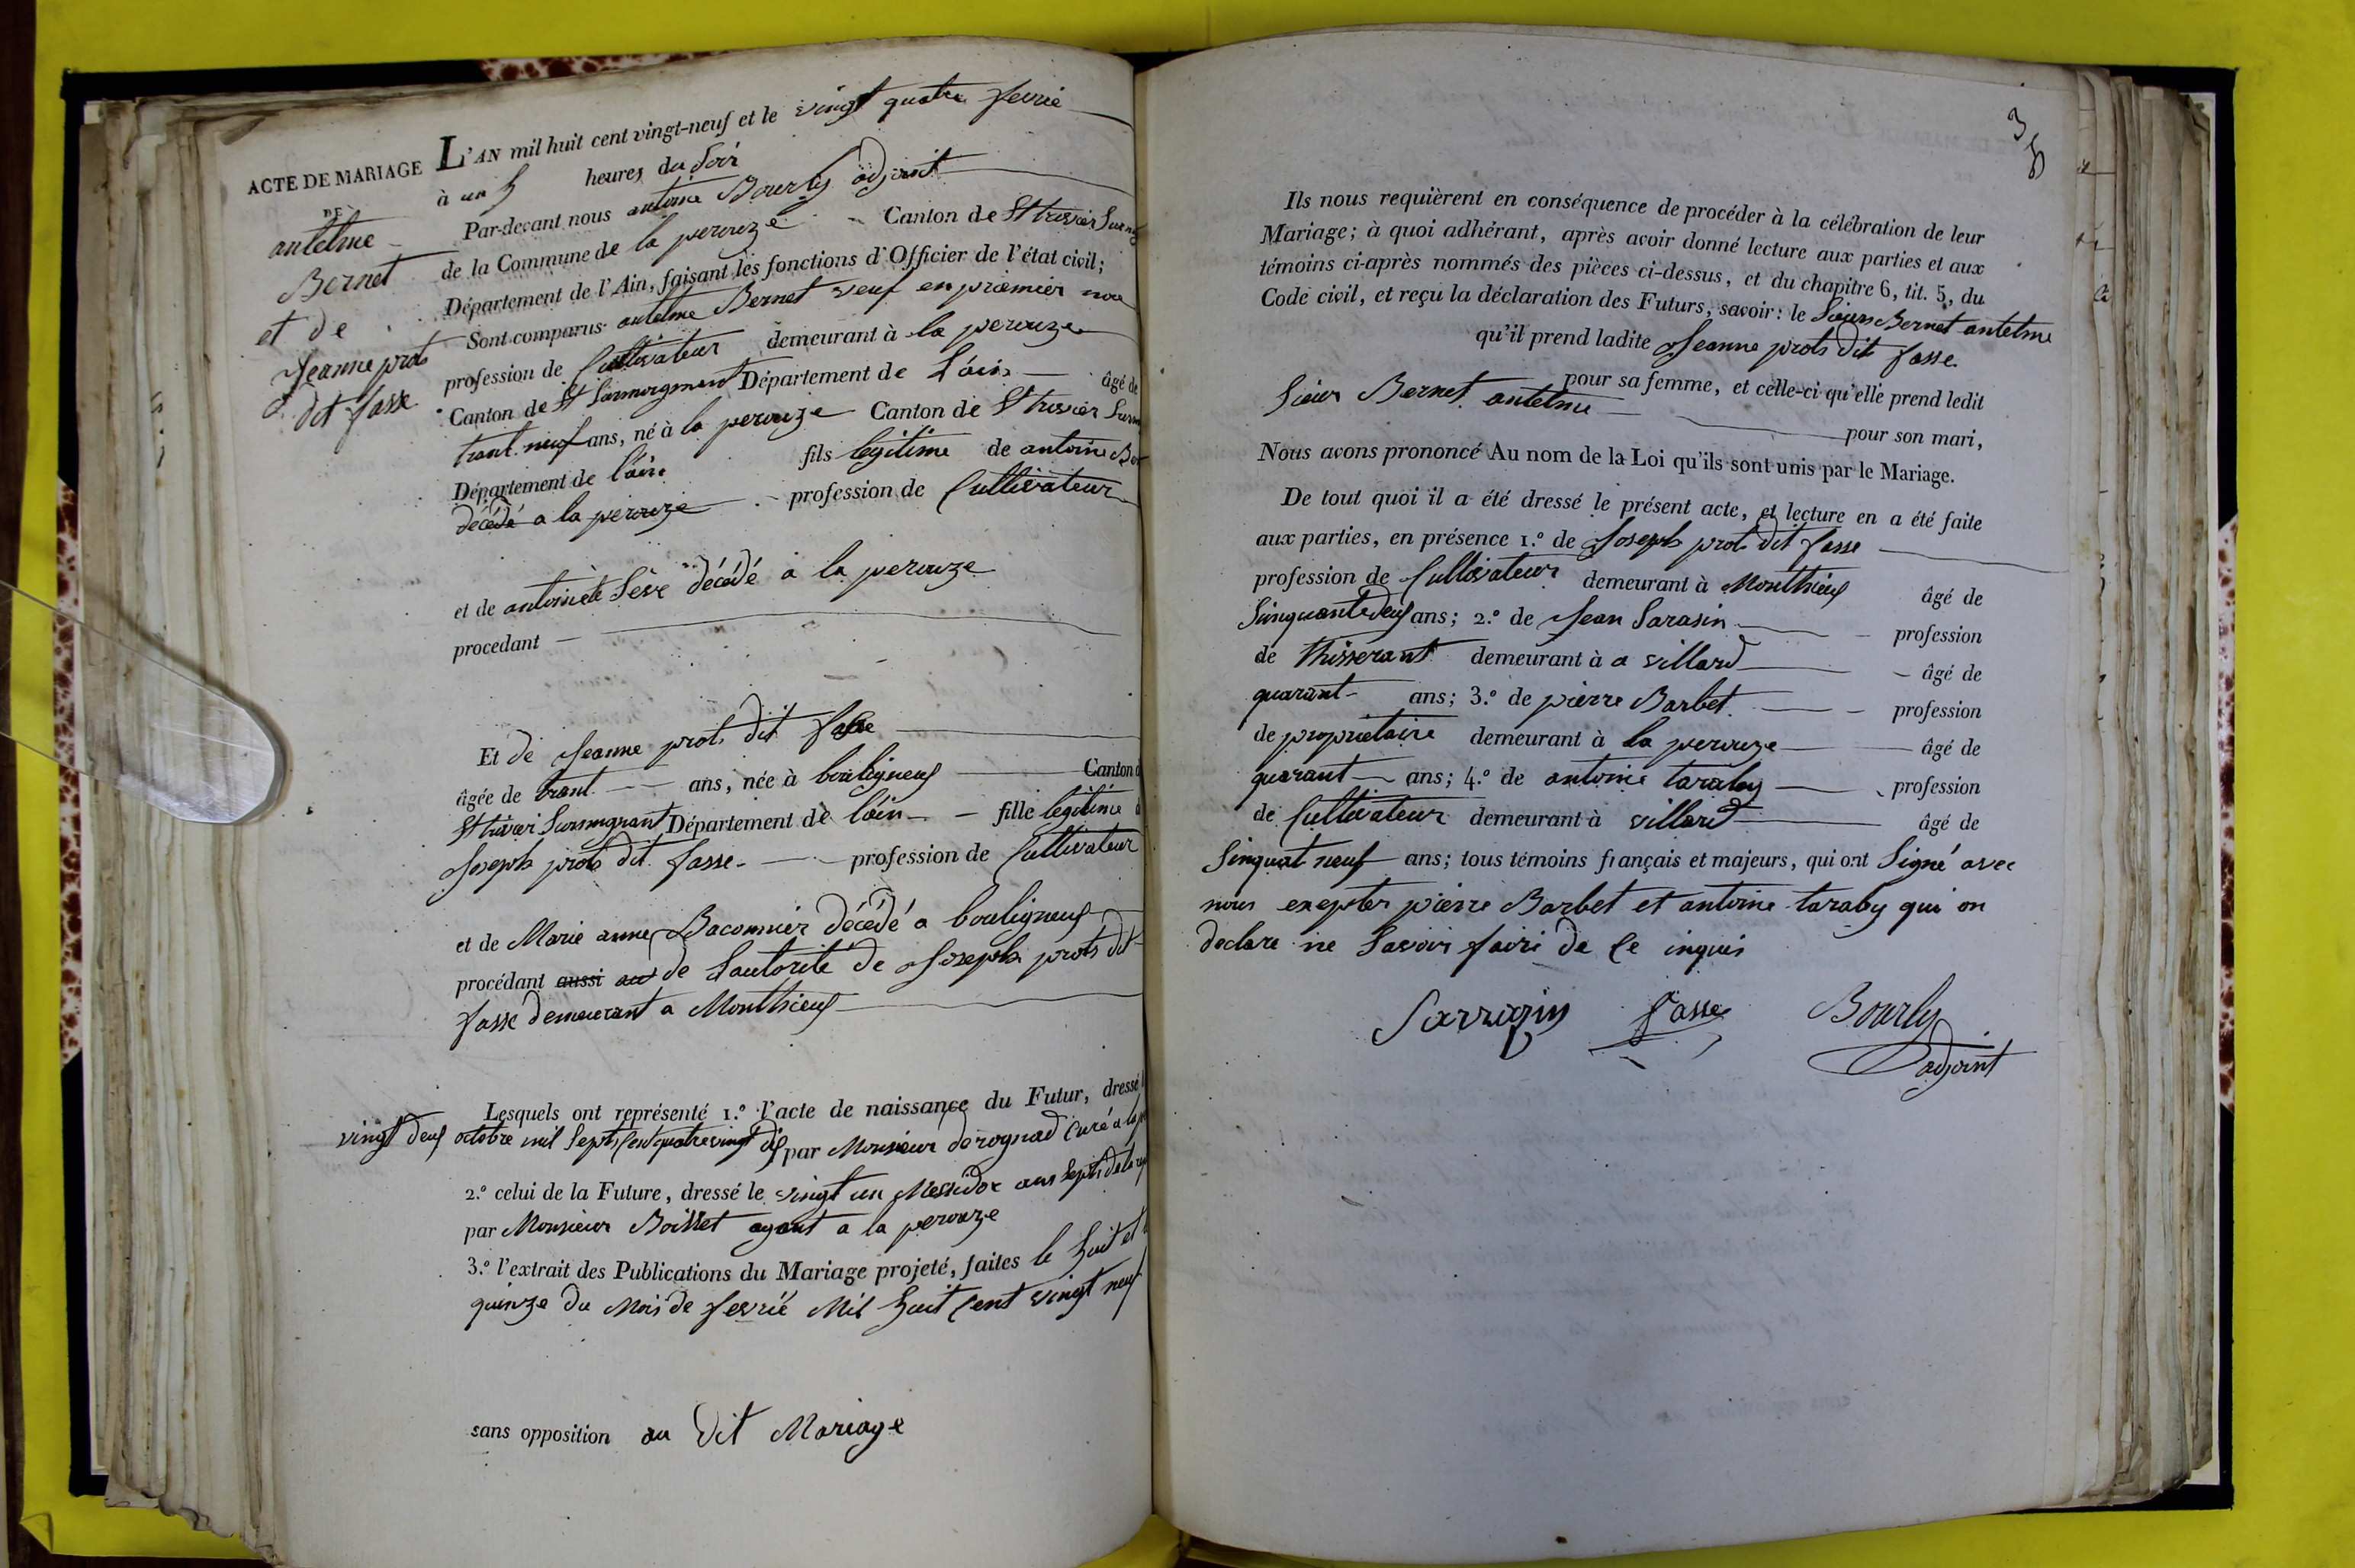 L'AN mil huit cent vingt-neuf et le vingt quatre fevrie
ACTE DE MARIAGE
à un heures du Soir
DE
Par-devant nous antoine Bourly adjoint
antelme
de la Commune de la perouze Canton de St trivier Sur
Bernet
Département de l'Ain, faisant les fonctions d'Officier de l'état civil;
et de
Sont comparus antelme Bernet veuf en premier noce
Jeanne prots
profession de Cultivateur demeurant à la perouze
dit fasse
Canton de St Département de L'ain âgé de
trant neuf ans, né à la perouze Canton de St trivier Sur
Département de l'ain fils legitime de antoine Ber
décédé a la perouze profession de Cultivateur
et de antoinete Sève décédé a la perouze
procedant
Et de Jeanne prots dit fasse
âgée de trant ans, née à bouligneux Canton d
St trivier Département de l'ain fille legitime d
Joseph prots dit fasse profession de Cultivateur
et de Marie anne Baconnier décédé a bouligneux
procédant aussi au de Lautorité de Joseph prots dit
fasse demeurant a Monthieux
Lesquels ont représenté 1.º l'acte de naissance du Futur, dressé l
vingt deux octobre mil Sept Cent quatre vingt dix par Monsieur derognad Curé a la pe
2.º celui de la Future, dressé le vingt un Messidor ans Sept de la rep
par Monsieur Boisset agant a la perouze
3.º l'extrait des Publications du Mariage projeté, faites le huit et
quinze du Mois de fevrié Mil huit Cent vingt neuf
sans opposition au dit Mariage
3
Ils nous requièrent en conséquence de procéder à la célébration de leur
Mariage; à quoi adhérant, après avoir donné lecture aux parties et aux
témoins ci-après nommés des pièces ci-dessus, et du chapitre 6, tit. 5, du
Code civil, et reçu la déclaration des Futurs, savoir: le Sieur Bernet antelme
qu'il prend ladite Jeanne prots dit fasse
pour sa femme, et celle-ci qu'elle prend ledit
Sieur Bernet antelme
pour son mari,
Nous avons prononcé Au nom de la Loi qu'ils sont unis par le Mariage.
De tout quoi il a été dressé le présent acte, et lecture en a été faite
aux parties, en présence 1.º de Joseph prots dit fasse
profession de Cultivateur demeurant à Monthieux âgé de
Sinquante deux ans; 2.º de Jean Sarasin profession
de thisserant demeurant à a villard âgé de
quarant ans; 3.º de pierre Barbet profession
de proprietaire demeurant à la perouze âgé de
quarant ans; 4.º de antoine taraby profession
de Cultivateur demeurant à villard âgé de
Sinquat neuf ans; tous témoins français et majeurs, qui ont Signé avec
nous exepter pierre Barbet et antoine taraby qui on
declare ne Savoir faire de Ce inquis
Sarrazin fasse Bourly
adjoint